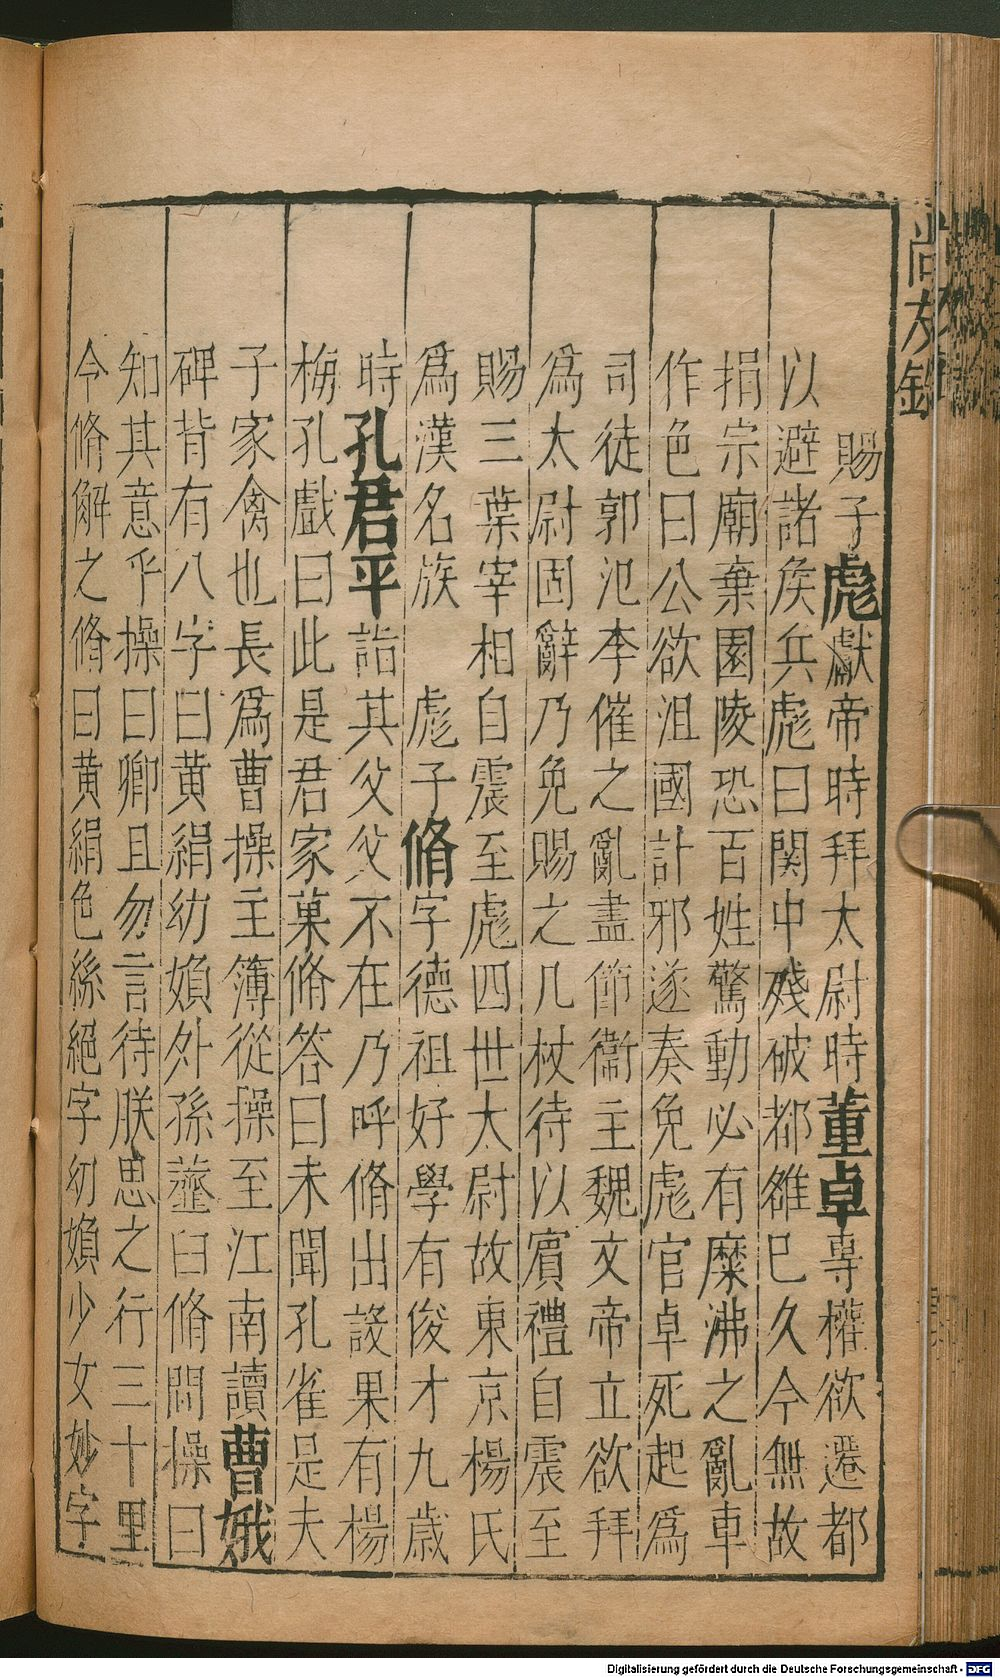 尚友錄
賜子彪獻帝時拜太尉時董卓專權欲遷都
以避諸矦兵彪曰関中殘破都雒已久今無故
捐宗廟棄園陵恐百姓驚動必有糜沸之亂車
作色曰公欲沮國計邪遂奏免彪官卓死起爲
司徒郭汜李催之亂盡節衞主魏文帝立欲拜
爲太尉固辭乃免賜之几杖待以賓禮自震至
賜三葉宰相自震至彪四世太尉故東京楊氏
爲漢名族　彪子脩字德祖好學有俊才九歲
時孔君平詣其父父不在乃呼脩出設果有楊
梅孔戲曰此是君家菓脩答曰未聞孔雀是夫
子家禽也長爲曹操主簿從操至江南讀曹娥
碑背有八字曰黄絹幼嬪外孫虀臼脩問操曰
知其意乎操曰卿且勿言待朕思之行三十里
令脩解之脩曰黄絹色絲絕字幼嬪少女妙字
Digitalisierung gefördert durch die Deutsche Forschungsgemeinschaft - DFG